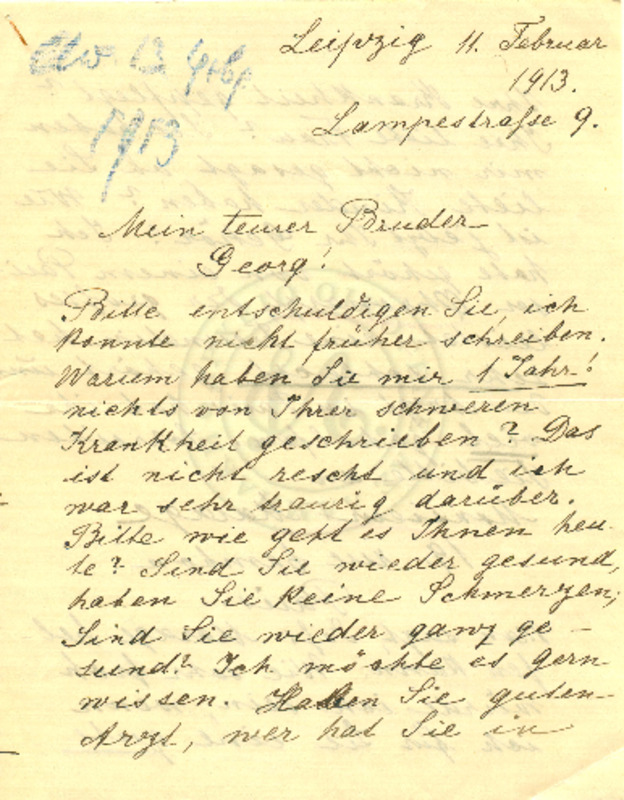 Leipzig 11. Februar
1913.
Lampestraße 9.
1913
Mein teurer Bruder
Georg!
Bitte entschuldigen Sie, ich
konnte nicht früher schreiben.
Warum haben Sie mir 1 Jahr!
nichts von Ihrer schweren
Krankheit geschrieben? Das
ist nicht rescht und ich
war sehr traurig darüber.
Bitte wie geht es Ihnen heu-
te? Sind Sie wieder gesund,
haben Sie keine Schmerzen;
Sind Sie wieder ganz ge-
sund? Ich möchte es gern
wissen. Haben Sie guten
Arzt, wer hat Sie in